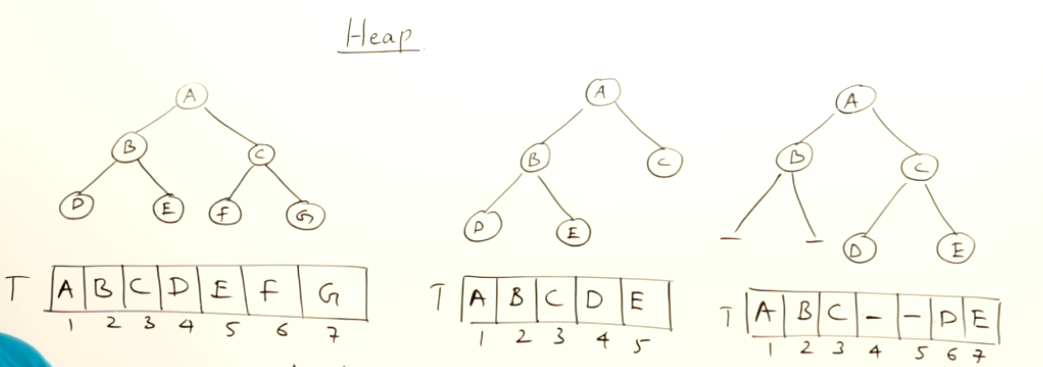 Heap
A
B C
D E F G
T A B C D E F G
1 2 3 4 5 6 7
A
B C
D E
T A B C D E
1 2 3 4 5
A
B C
– – D E
T A B C – – D E
1 2 3 4 5 6 7